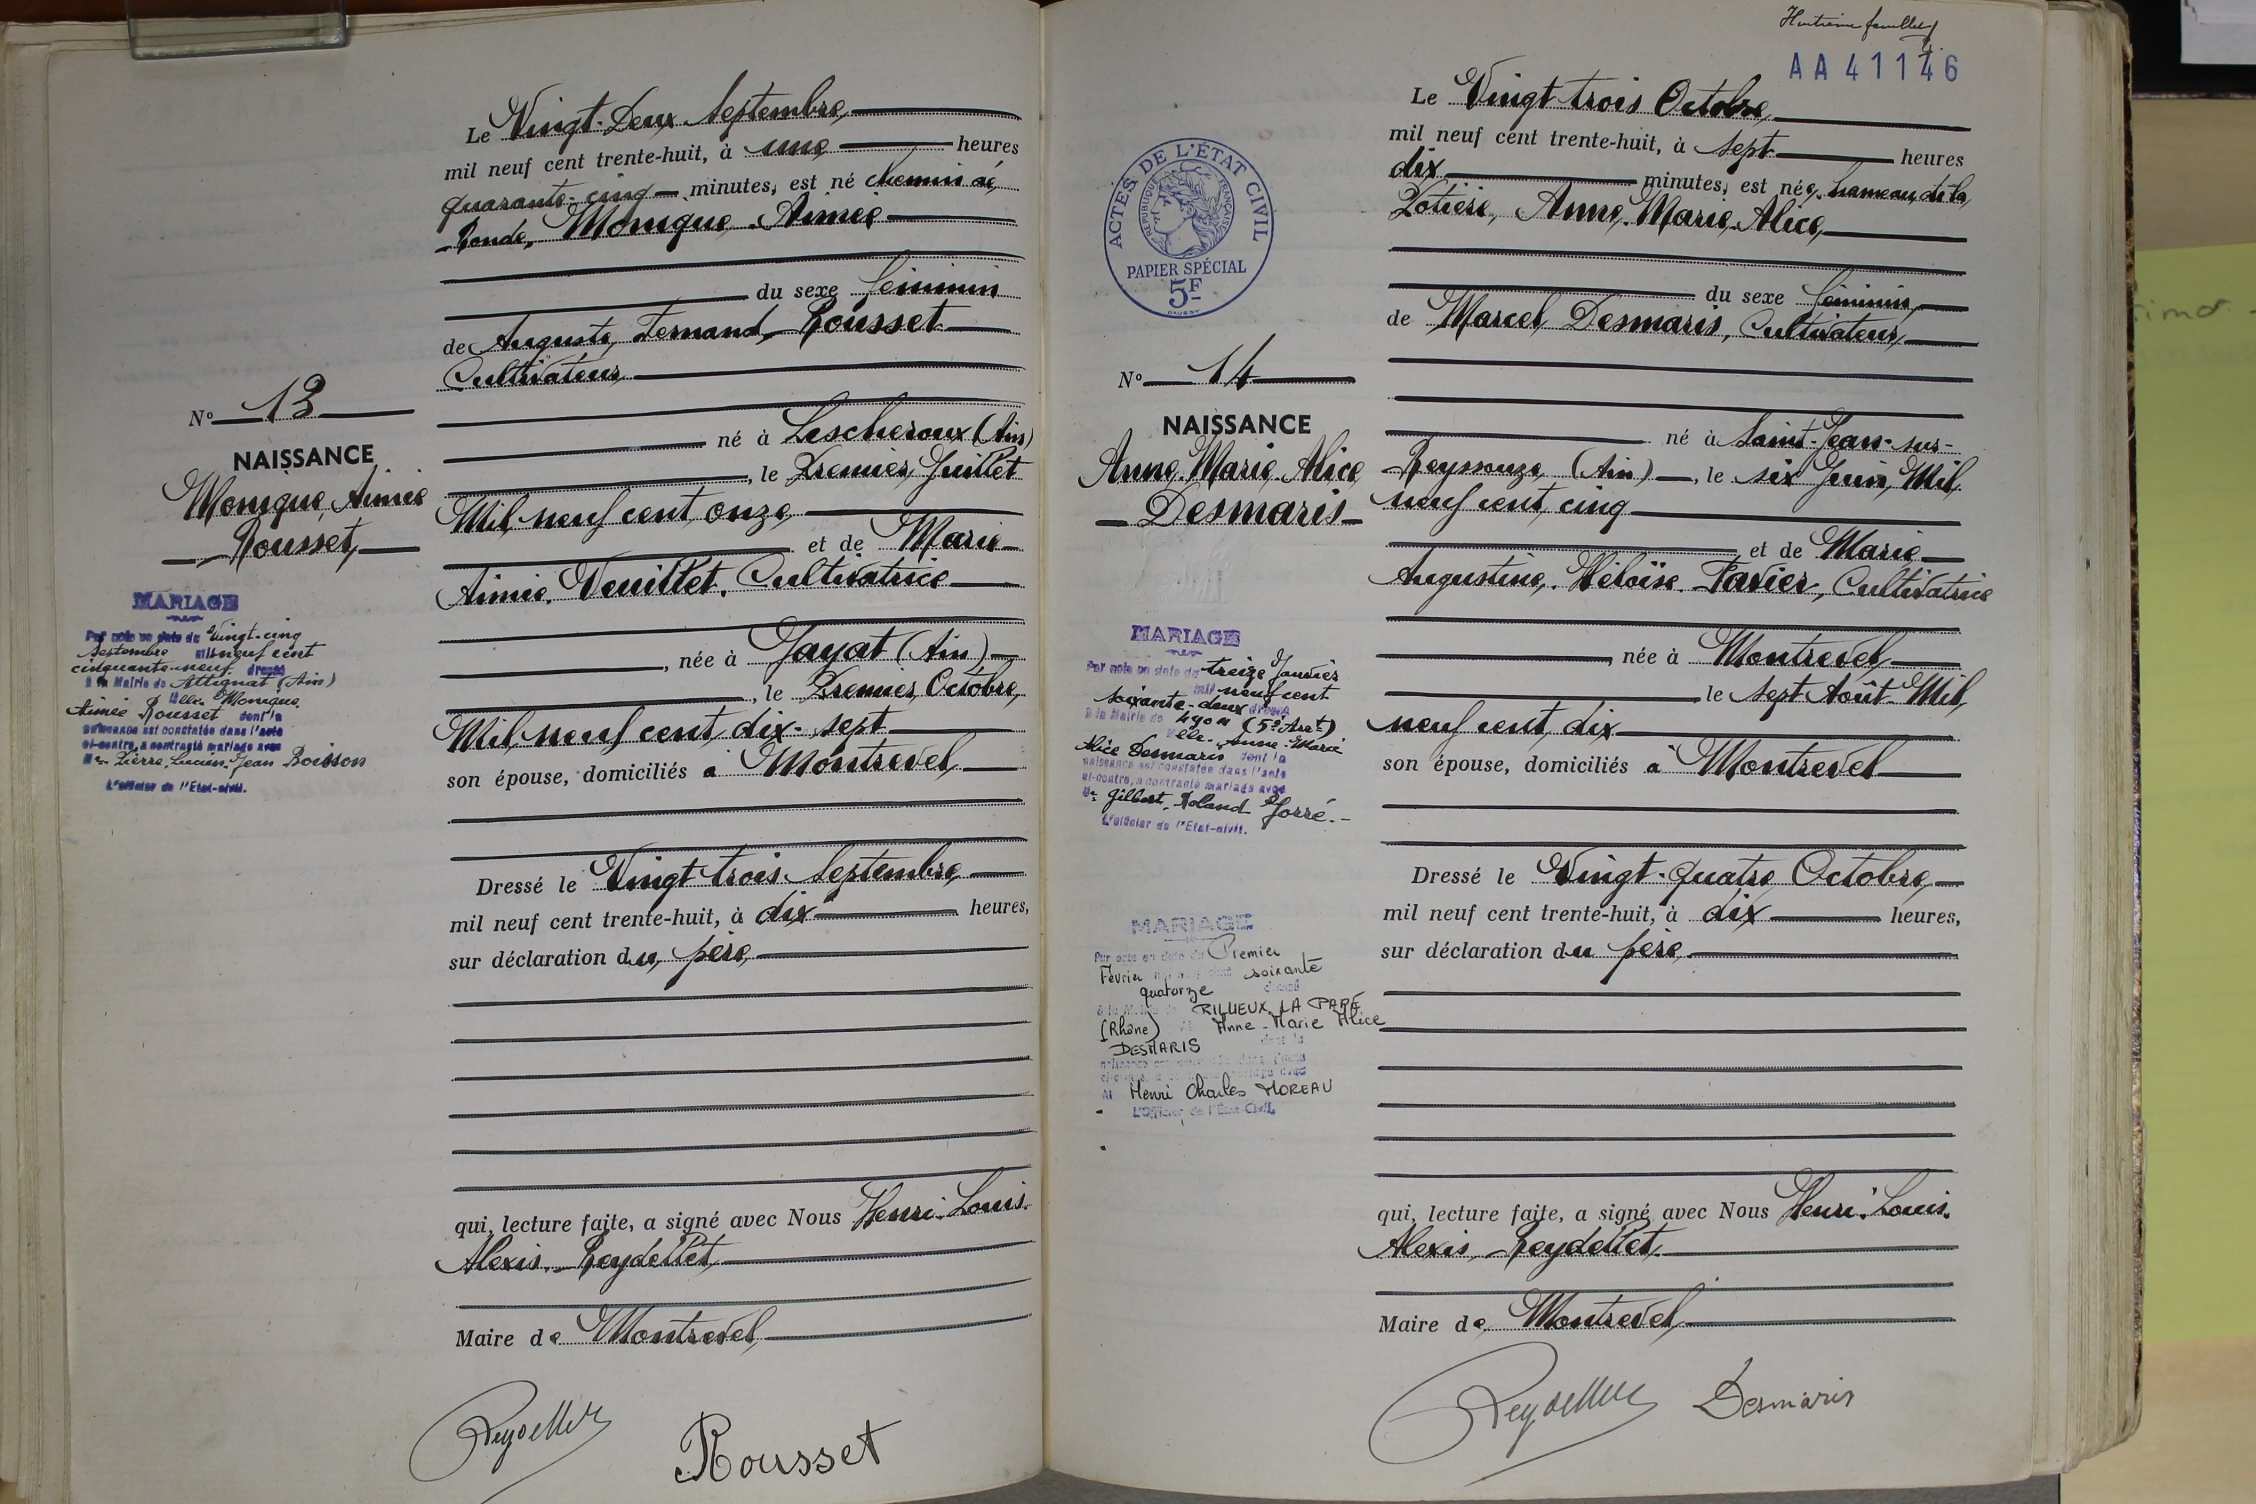 Le Vingt-Deux Septembre
mil neuf cent trente-huit, à une heures
quarante-cinq minutes, est né chemin de
Ronde, Monique Aimée
du sexe féminin
de Auguste, Fernand, Rousset
Cultivateur
né à Lescheroux (Ain)
, le Premier Juillet
Mil neuf cent onze
et de Marie
Aimée Veuillet, Cultivatrice
, née à Jayat (Ain)
, le Premier Octobre,
Mil neuf cent dix-sept
son épouse, domiciliés à Montrevel
Dressé le Vingt trois Septembre
mil neuf cent trente-huit, à dix heures,
sur déclaration du père
qui, lecture faite, a signé avec Nous Henri-Louis
Alexis Reydellet
Maire de Montrevel
Reydellet
Rousset
N° 13
NAISSANCE
Monique, Aimée
Rousset
MARIAGE
Par acte en date du Vingt-cinq
Septembre mil neuf cent
cinquante-neuf dressé
à la Mairie de Attignat (Ain)
Mlle Monique
Aimée Rousset dont la
naissance est constatée dans l'acte
ci-contre, a contracté mariage avec
Mr Pierre, Lucien, Jean Boisson
L'officier de l'Etat-civil.
Huitième feuillet
AA41146
Le Vingt trois Octobre
mil neuf cent trente-huit, à sept heures
dix minutes, est née, hameau de la
Potière, Anne Marie Alice,
du sexe féminin
de Marcel Desmaris, Cultivateur,
né à Saint-Jean-sur-
Reyssouze (Ain), le six Juin, Mil
neuf cent cinq
et de Marie
Augustine, Héloïse Favier, Cultivatrice
, née à Montrevel
le sept Août Mil
neuf cent dix
son épouse, domiciliés à Montrevel
Dressé le Vingt-quatre Octobre,
mil neuf cent trente-huit, à dix heures,
sur déclaration du père
qui, lecture faite, a signé avec Nous Henri-Louis
Alexis Reydellet
Maire de Montrevel
Reydellet
Desmaris
ACTES DE L'ÉTAT CIVIL
RÉPUBLIQUE FRANÇAISE
PAPIER SPÉCIAL
5F
N° 14
NAISSANCE
Anne Marie Alice
Desmaris
MARIAGE
Par acte en date du treize Janvier
mil neuf cent
soixante-deux dressé
à la Mairie de Lyon (5e Arrt)
Mlle Anne-Marie
Alice Desmaris dont la
naissance est constatée dans l'acte
ci-contre, a contracté mariage avec
Mr Gilbert, Roland Jorré.-
L'officier de l'Etat-civil.
MARIAGE
Par acte en date du Premier
Février mil neuf cent soixante
quatorze dressé
à la Mairie de RILLIEUX LA PAPE
(Rhône) Anne-Marie Alice
DESMARIS dont la
naissance est constatée dans l'acte
ci-contre, a contracté mariage avec
M Henri Charles MOREAU
L'Officier de l'État-Civil,